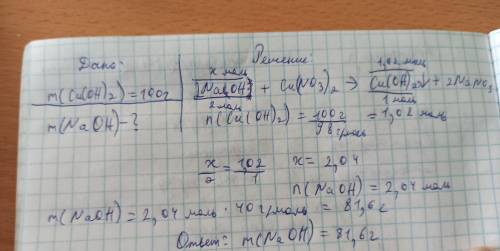 Дано:
m(Cu(OH)₂)=100г
m(NaOH)-?
Решение:
x моль 1,02 моль
2NaOH + Cu(NO₃)₂ → Cu(OH)₂↓ + 2NaNO₃
2 моль 1 моль
n(Cu(OH)₂) = 100г / 98 г/моль = 1,02 моль
x/2 = 1,02/1 x = 2,04
n(NaOH) = 2,04 моль
m(NaOH) = 2,04 моль · 40 г/моль = 81,6г
Ответ: m(NaOH) = 81,6г